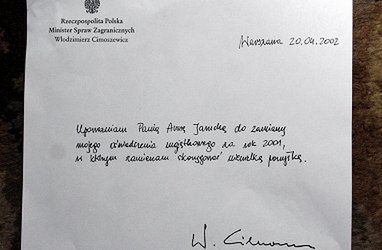 Rzeczpospolita Polska
Minister Spraw Zagranicznych
Włodzimierz Cimoszewicz
Warszawa 20.04.2002
Upoważniam Panią Annę Jarucką do zamiany
mojego oświadczenia majątkowego za rok 2001,
w którym zamierzam skorygować niewielką pomyłkę.
W. Cimosz